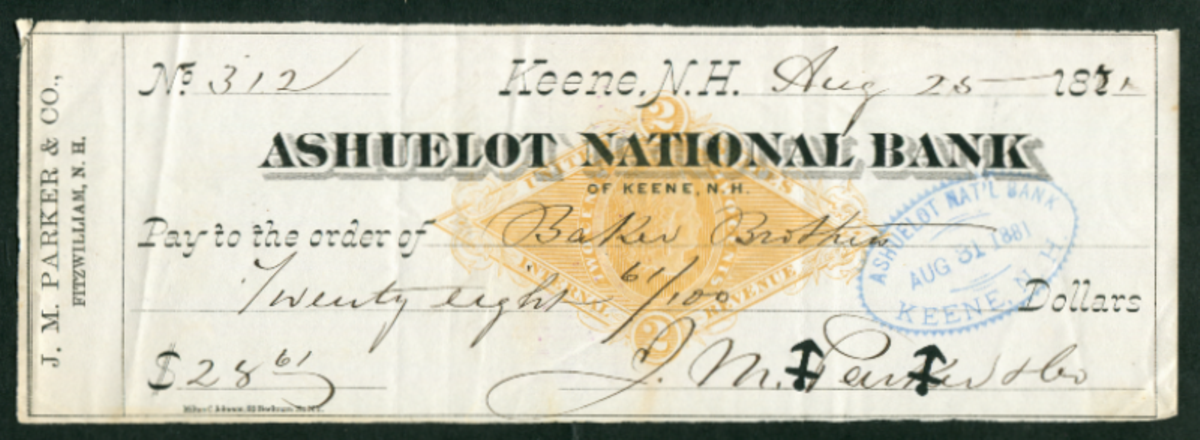 J. M. PARKER & CO.,
FITZWILLIAM, N. H.
No. 312 Keene, N.H. Aug 25 1881
ASHUELOT NATIONAL BANK
OF KEENE, N.H.
UNITED STATES
2
Pay to the order of Baker Brothers
ASHUELOT NAT'L BANK
AUG 31 1881
KEENE, N. H.
Twenty eight 61/100 Dollars
INTERNAL REVENUE
2
$28 61 J. M. Parker & Co